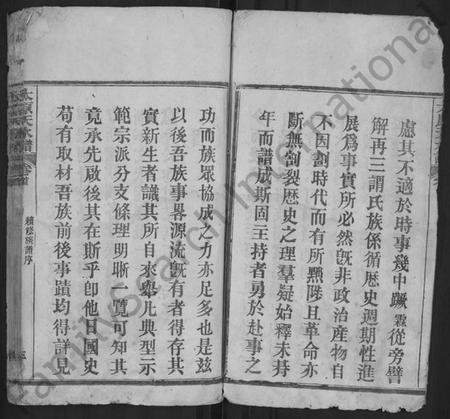 慮其不適於時事幾中蹶霖從旁譬
解再三謂民族係循歷史週期性進
展爲事實所必然旣非政治産物自
不因劃時代而有所黜陟且革命亦
斷無割裂歷史之理羣疑始釋未幷
年而譜成斯固主持者勇於赴事之
功而族眾協成之力亦足多也是兹
以後吾族事畧源流旣有者得存其
實新生者識其所自來舉凡典型示
範宗派分支條理明晰一覽可知其
竟承先啟後其在斯乎卽他日國史
苟有取材吾族前後事蹟均得詳見
續修族譜序
FamilySearch International